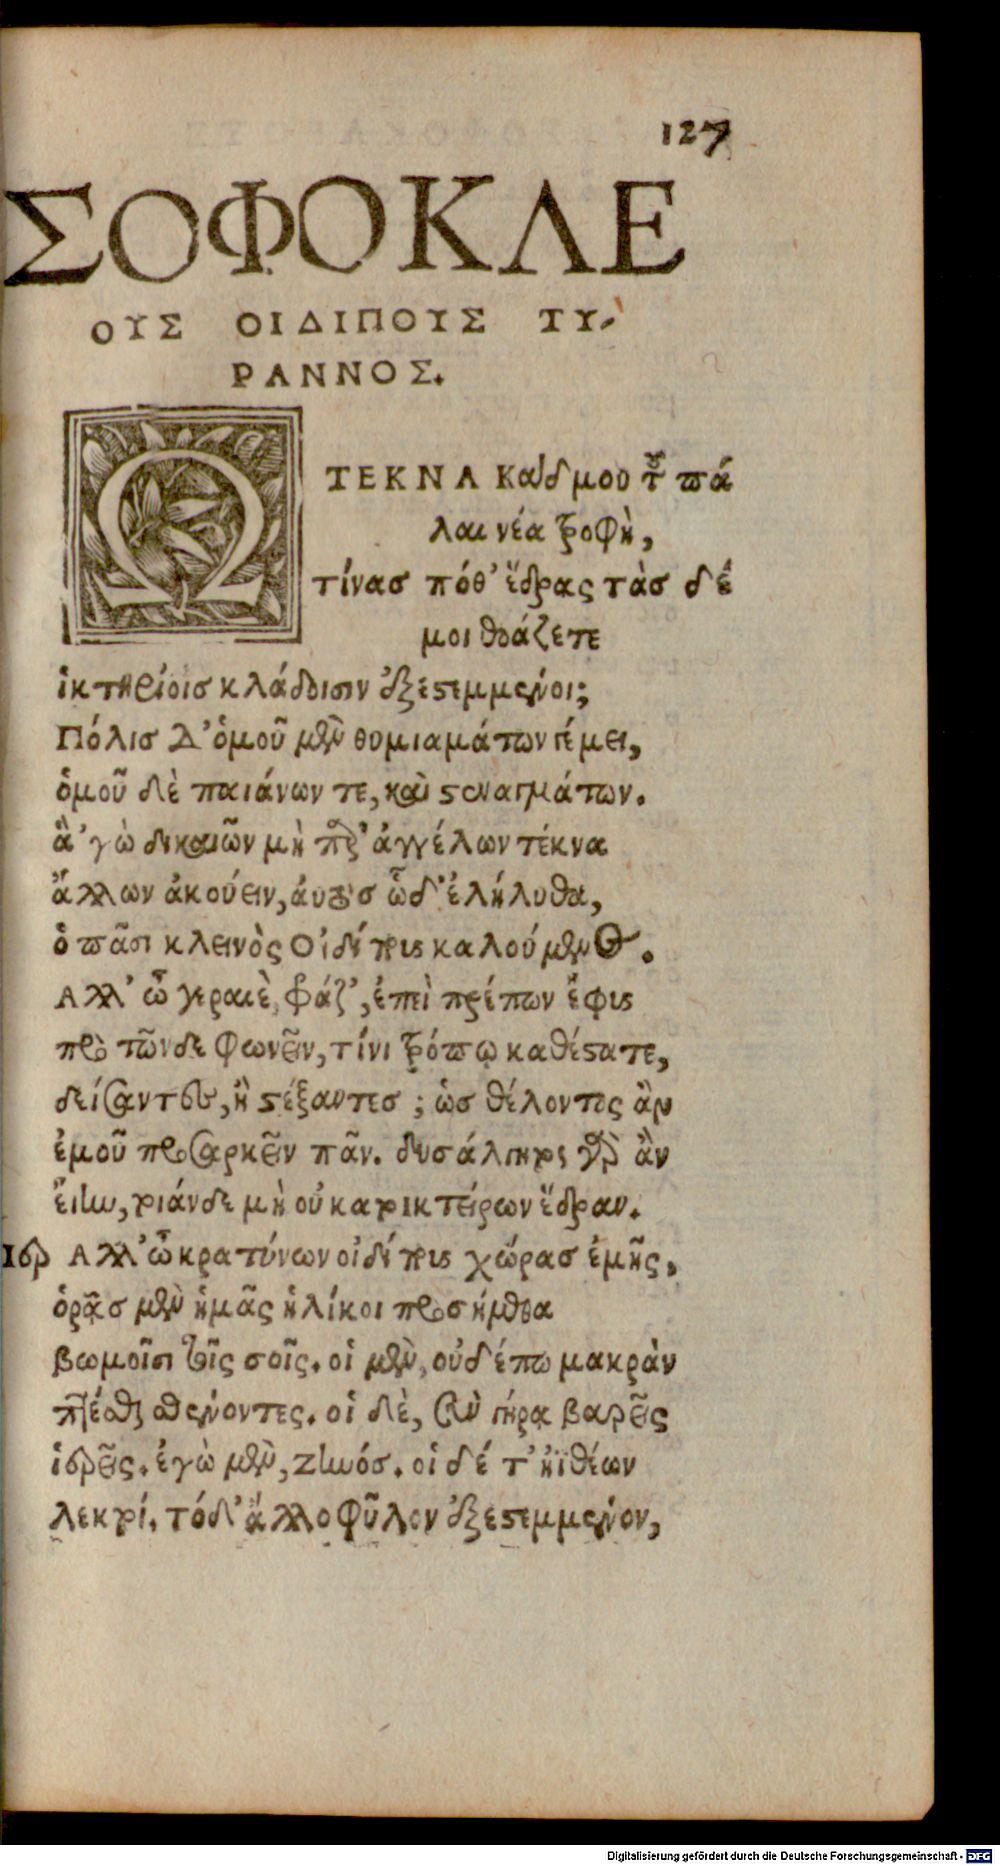 127
ΣΟΦΟΚΛΕ
ΟΥΣ ΟΙΔΙΠΟΥΣ ΤΥ-
ΡΑΝΝΟΣ.
Ω ΤΕΚΝΑ Κάδμου τοῦ πά
λαι νέα τροφὴ,
τίνας πόθ' ἕδρας τὰσ δέ
μοι θοάζετε
ἱκτηρίοισ κλάδοισιν ἐξεστεμμένοι;
Πόλισ δ' ὁμοῦ μὲν θυμιαμάτων γέμει,
ὁμοῦ δὲ παιάνων τε, καὶ στεναγμάτων.
ἃ 'γὼ δικαιῶν μὴ παρ' ἀγγέλων τέκνα
ἄλλων ἀκούειν, αὐτὸσ ὧδ' ἐλήλυθα,
ὁ πᾶσι κλεινὸς Οἰδίπους καλούμενος.
Αλλ' ὦ γεραιὲ, φράζ', ἐπεὶ πρέπων ἔφυς
πρὸ τῶνδε φωνεῖν, τίνι τρόπῳ καθέστατε,
δείσαντες, ἢ στέξαντεσ; ὡσ θέλοντος ἂν
ἐμοῦ προσαρκεῖν πᾶν. δυσάλγητος γὰρ ἂν
εἴην, τοιάνδε μὴ οὐ κατοικτείρων ἕδραν.
Ιερ Αλλ' ὦ κρατύνων οἰδίπους χώρασ ἐμῆς,
ὁρᾷσ μὲν ἡμᾶς ἡλίκοι προσήμεθα
βωμοῖσι τοῖς σοῖς. οἱ μὲν, οὐδέπω μακρὰν
πτέσθαι σθένοντες. οἱ δὲ, σὺν γήρᾳ βαρεῖς
ἱερεῖς. ἐγὼ μὲν, ζηνόσ. οἱ δέ τ' ἠϊθέων
λεκτοί. τόδ' ἄλλο φῦλον ἐξεστεμμένον,
Digitalisierung gefördert durch die Deutsche Forschungsgemeinschaft - DFG